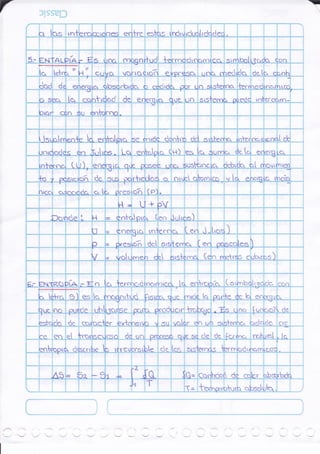 Classic
a las interacciones entre estas individualidades.
5.- ENTALPÍA.- Es una magnitud termodinámica, simbolizada con
la letra "H", cuya variación expresa una medida de la canti
dad de energía absorbida o cedida por un sistema termodinámico,
o sea la cantidad de energía que un sistema puede intercam-
biar con su entorno.
Usualmente la entalpía se mide dentro del sistema internacional de
unidades en Julios. La entalpía (H) es la suma de la energía
interna (U), energía que posee una sustancia debida al movimien
to y posición de sus partículas a nivel atómico y la energía
asociada a la presión (P).
H = U + pV
Donde: H = entalpía (en Julios)
U = energía interna (en Julios)
P = presión del sistema (en pascales)
V = volumen del sistema (en metros cúbicos)
6.- ENTROPÍA.- En la termodinámica, la entropía (simbolizada con
la letra S) es la magnitud física que mide la parte de la energía
que no puede utilizarse para producir trabajo. Es una función de
estado de carácter extensivo y su valor en un sistema aislado cre
ce en el transcurso de un proceso que se dé de forma natural, la
entropía describe lo irreversible de los sistemas termodinámicos.
ΔS = S2 - S1 = ∫₁² δQ/T δQ = Cantidad de calor absorbida
T = temperatura absoluta.